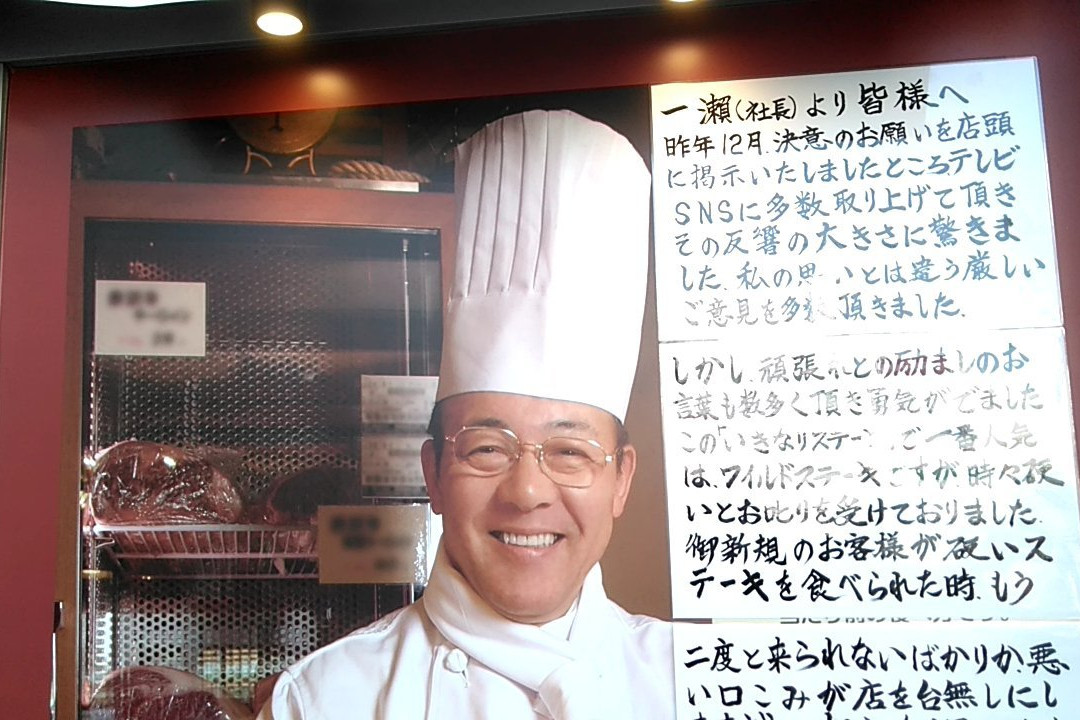 一瀬(社長)より皆様へ
昨年12月.決意のお願いを店頭
に掲示いたしましたところテレビ
SNSに多数取り上げて頂き
その反響の大きさに驚きま
した.私の思いとは違う厳しい
ご意見を多数頂きました.
しかし.頑張れとの励ましのお
言葉も数多く頂き勇気がでました
この「いきなりステーキ」で一番人気
は.ワイルドステーキですが.時々硬
いとお叱りを受けておりました.
御新規のお客様が硬いス
テーキを食べられた時.もう
二度と来られないばかりか.悪
い口こみが店を台無しにし